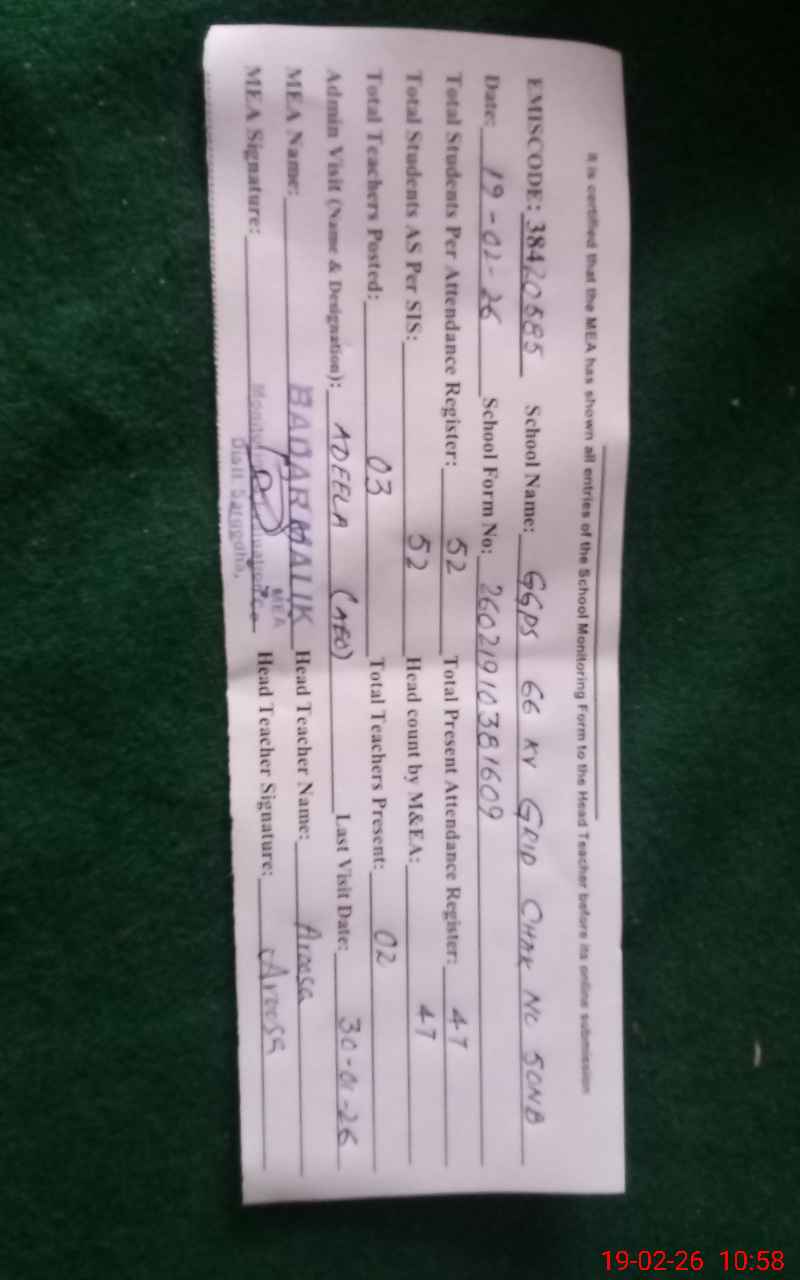 It is certified that the MEA has shown all entries of the School Monitoring Form to the Head Teacher before its online submission
EMISCODE: 38420585 School Name: GGPS 66 KV GRID CHAK NO 50NB
Date: 19-02-26 School Form No: 26021910381609
Total Students Per Attendance Register: 52 Total Present Attendance Register: 47
Total Students AS Per SIS: 52 Head count by M&EA: 47
Total Teachers Posted: 03 Total Teachers Present: 02
Admin Visit (Name & Designation): ADEELA (AEO) Last Visit Date: 30-01-26
MEA Name: BADAR MALIK Head Teacher Name: Aroosa
MEA
MEA Signature: Head Teacher Signature: Aroosa
Distt Sargodha.
19-02-26 10:58